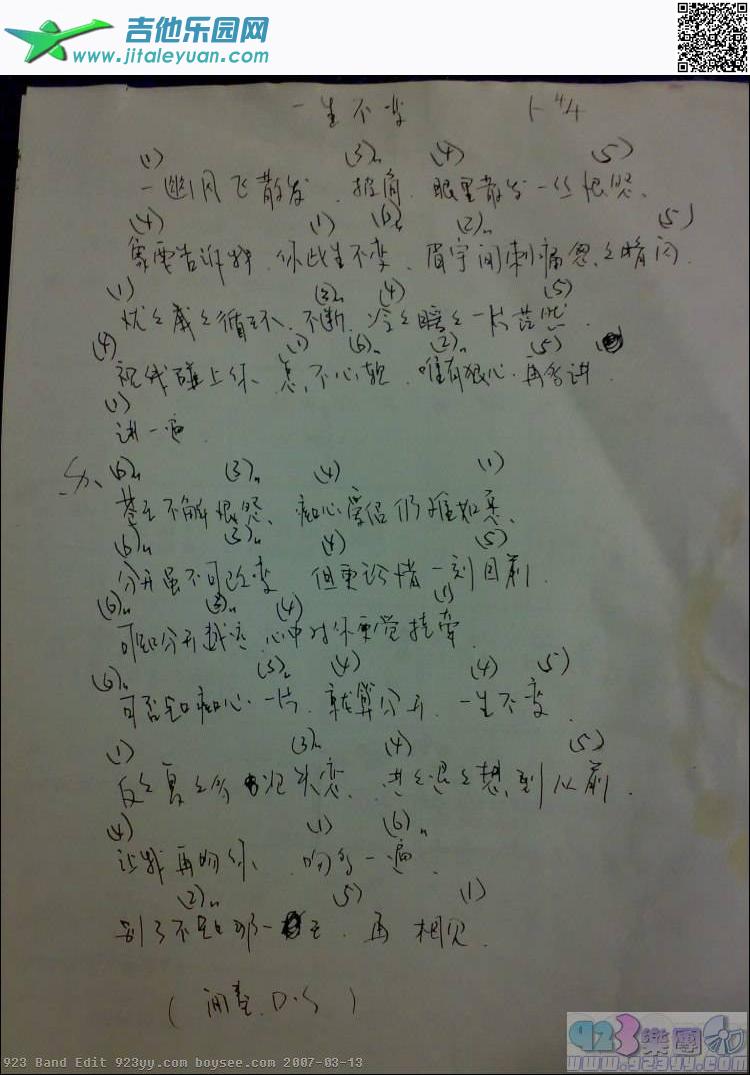 吉他乐园网
www.jitaleyuan.com
一生不变 4/4
(1) (3)m (4) (5)
一幽风飞散发 披肩 眼里散发一丝恨怨、
(4) (1) (6)m (2)m (5)
象要告诉我、你此生不变、眉宇间刺痛忽么暗闪.
(1) (3)m (4) (5)
忧么戚么循环、不断、冷么暖么一片茫然.
(4) (1) (6)m (2)m (5)
视线碰上你、怎、不心软、唯有狠心再多讲.
(1)
讲一遍
(6)m (3)m (4) (1)
苍天不解恨怨、痴心爱侣仍难如愿、
(6)m (3)m (4) (5)
分开虽不可改变 但更珍惜一刻目前.
(6)m (3)m (4) (1)
可知分开越远 心中对你更觉挂牵
(6)m (3)m (4) (4) (5)
可否知痴心一片、就算分开、一生不变.
(1) (3)m (4) (5)
反么复么多次失恋、进么退么想到从前.
(4) (1) (6)m
让我再吻你、吻多一遍、
(2)m (5) (1)
别了不知哪一天、再 相见.
(间奏、D.S)
923樂團
www.923yy.com
923 Band Edit 923yy.com boysee.com 2007-03-13